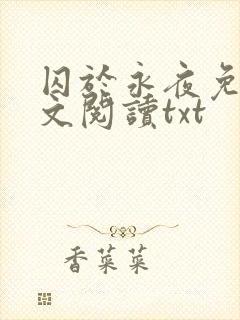 囚於永夜免
文閱讀txt
香菜菜